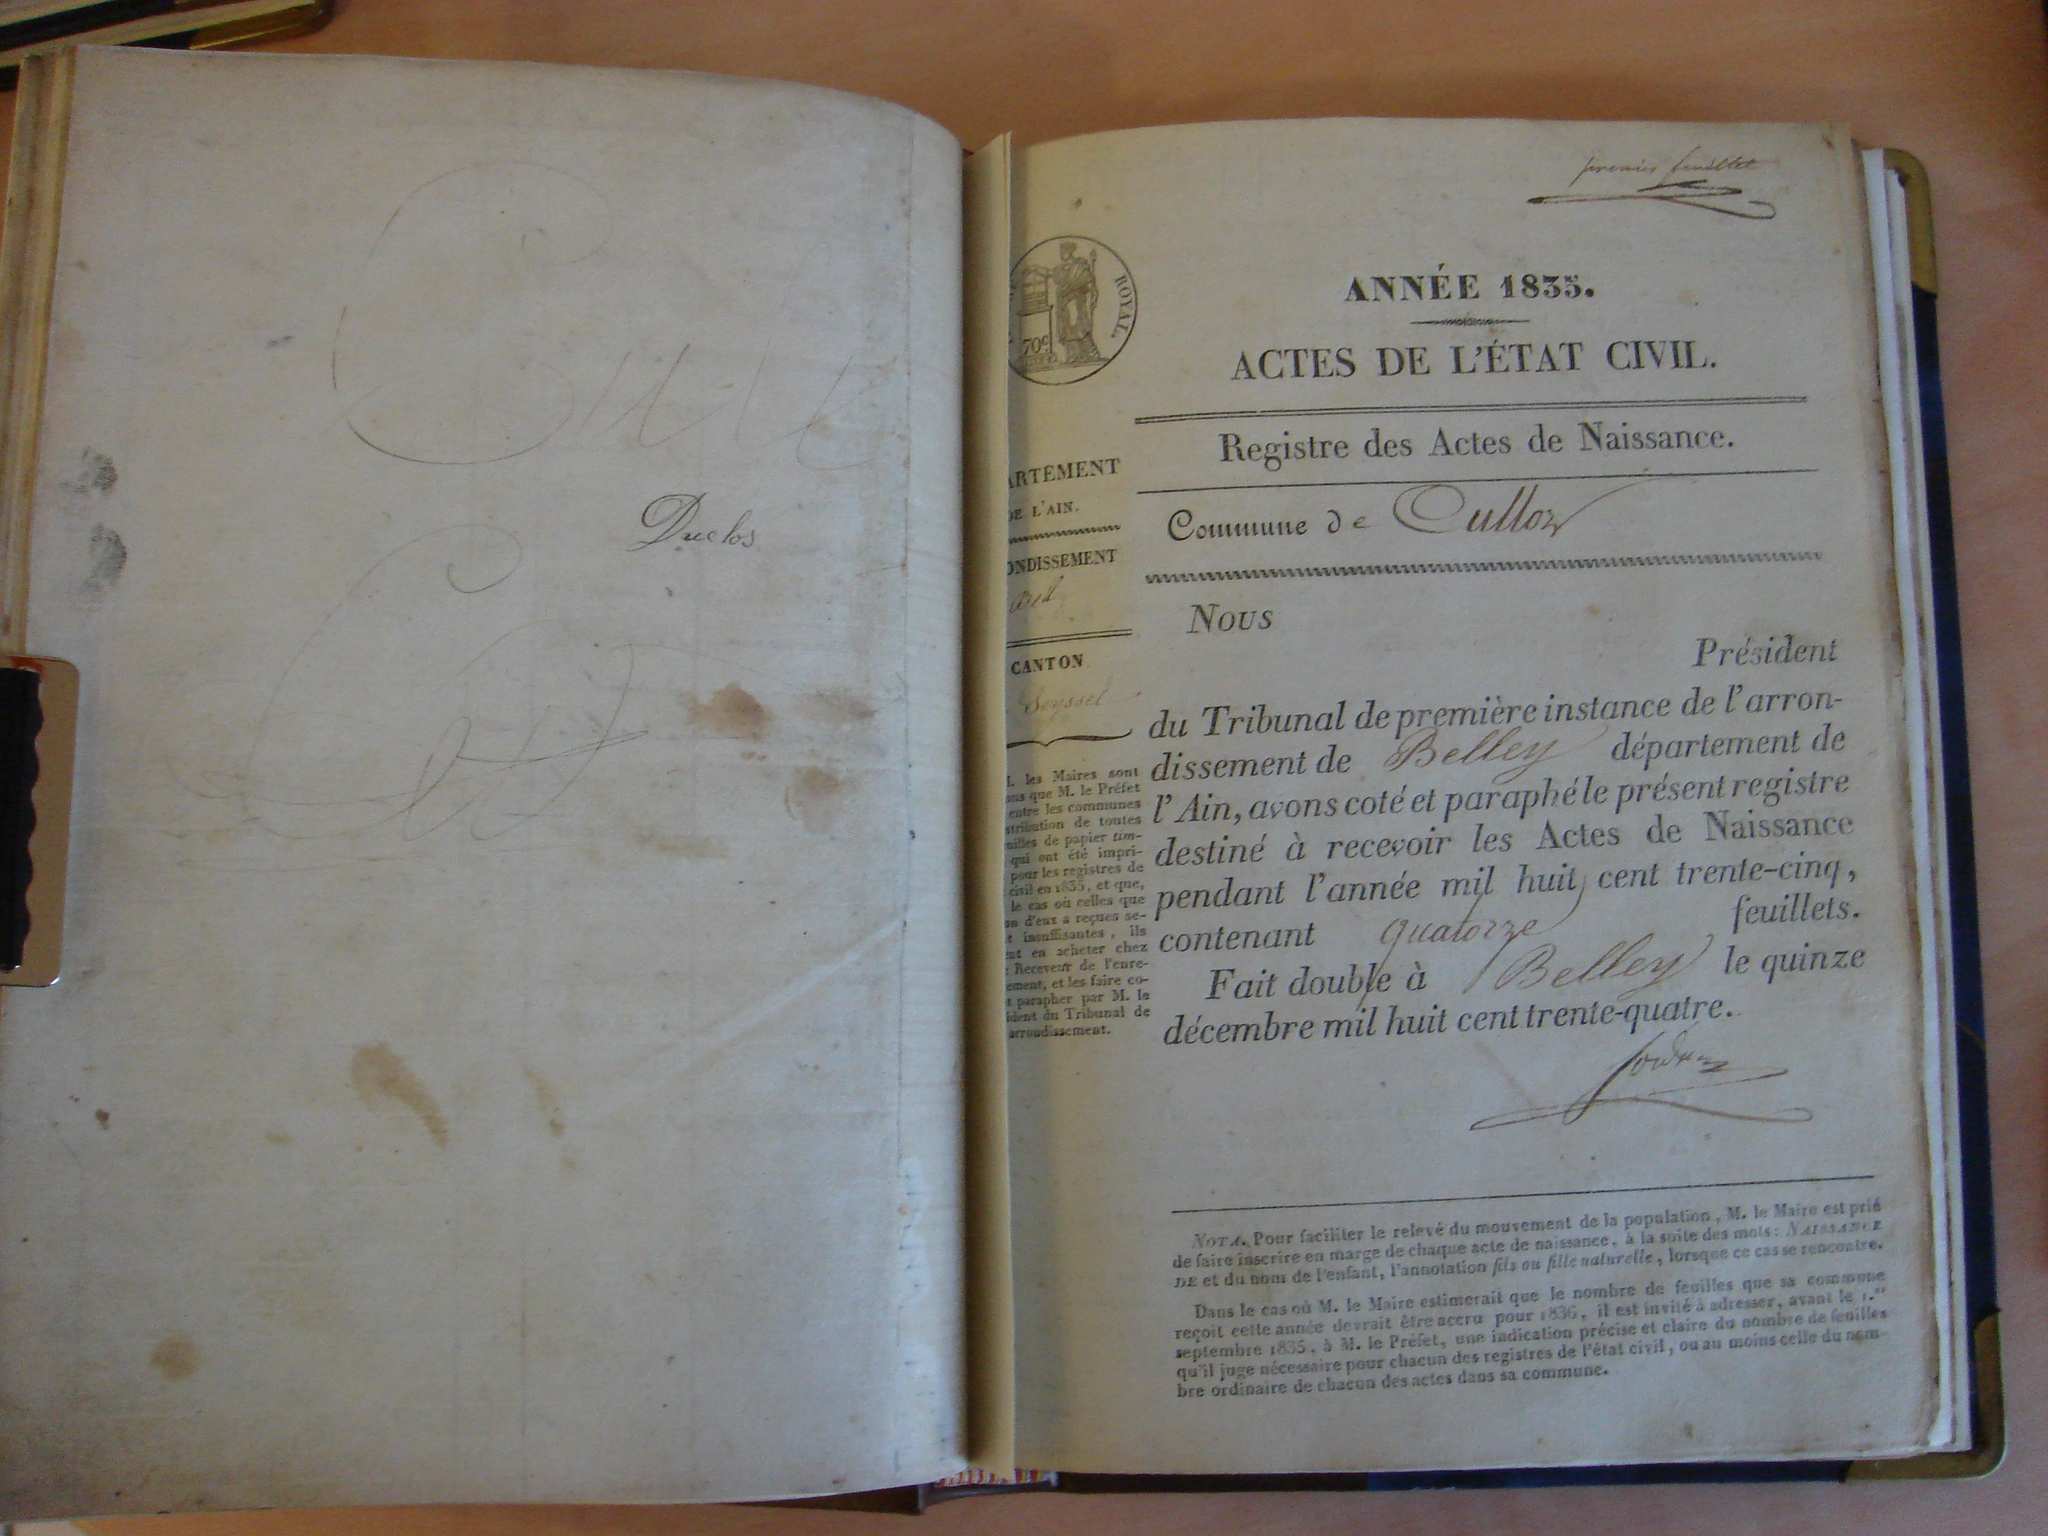 Duclos
premier feuillet
ROYAL
70c
ANNÉE 1835.
ACTES DE L'ÉTAT CIVIL.
Registre des Actes de Naissance.
Commune de Culloz
ARTEMENT
DE L'AIN.
ONDISSEMENT
CANTON
Seyssel
. les Maires sont
ons que M. le Préfet
entre les communes
stribution de toutes
uilles de papier tim-
qui ont été impri-
pour les registres de
civil en 1835, et que,
le cas où celles que
un d'eux a reçues se-
t insuffisantes, ils
nt en acheter chez
Receveur de l'enre-
ement, et les faire co-
t parapher par M. le
ident du Tribunal de
arrondissement.
Nous
Président
du Tribunal de première instance de l'arron-
dissement de Belley département de
l'Ain, avons coté et paraphé le présent registre
destiné à recevoir les Actes de Naissance
pendant l'année mil huit cent trente-cinq,
contenant quatorze feuillets.
Fait double à Belley le quinze
décembre mil huit cent trente-quatre.
NOTA. Pour faciliter le relevé du mouvement de la population, M. le Maire est prié
de faire inscrire en marge de chaque acte de naissance, à la suite des mots: NAISSANCE
DE et du nom de l'enfant, l'annotation fils ou fille naturelle, lorsque ce cas se rencontre.
Dans le cas où M. le Maire estimerait que le nombre de feuilles que sa commune
reçoit cette année devrait être accru pour 1836, il est invité à adresser, avant le 1.er
septembre 1835, à M. le Préfet, une indication précise et claire du nombre de feuilles
qu'il juge nécessaire pour chacun des registres de l'état civil, ou au moins celle du nom-
bre ordinaire de chacun des actes dans sa commune.